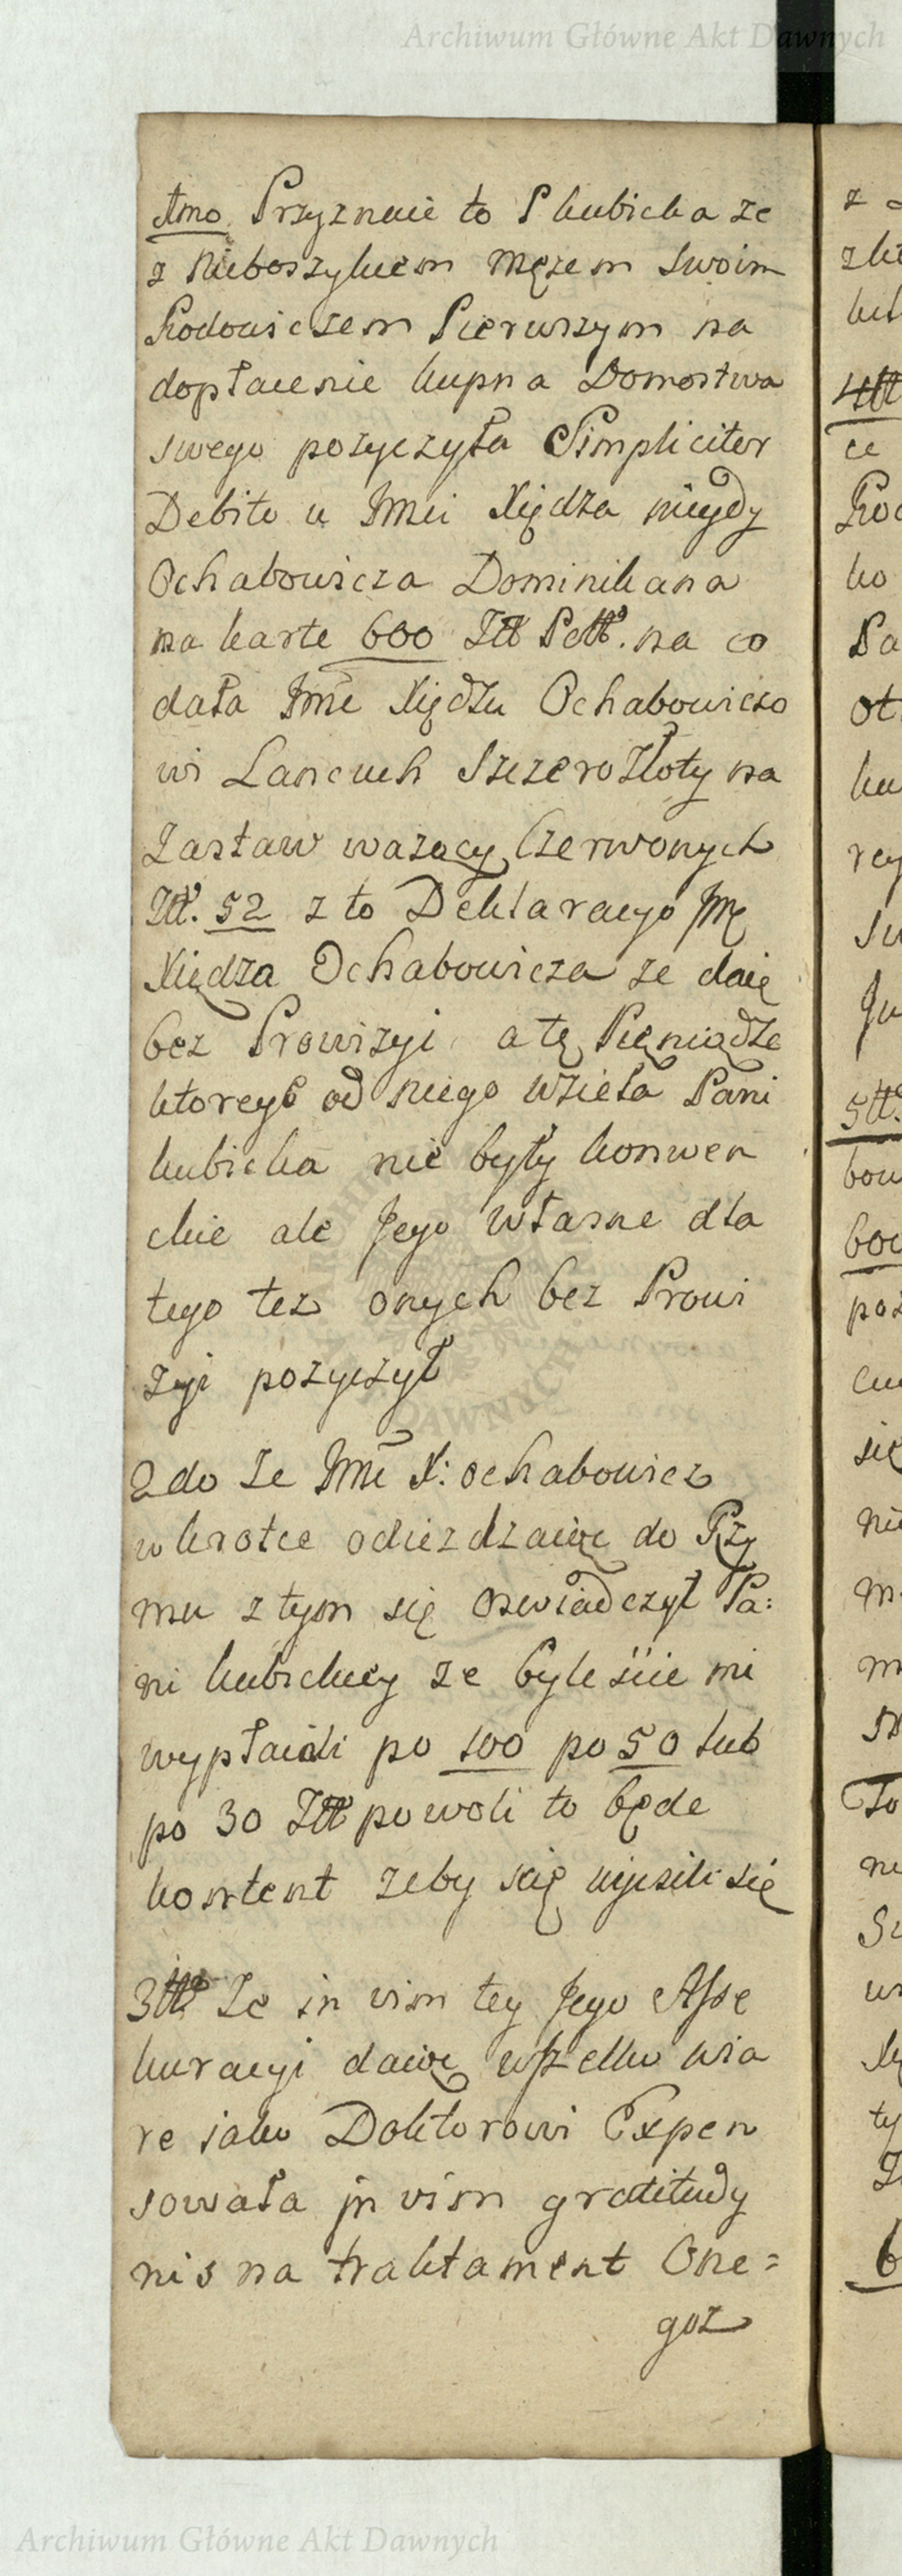 Archiwum Główne Akt Dawnych
1mo Przyznaie to P kubicka ze
z Nieboszykiem Męzem swoim
Rodowiczem Pierwszym na
dopłacenie kupna Domostwa
swego pozyczyła Simpliciter
Debito u Jmci Xiędza niegdy
Ochabowicza Dominikana
na karte 600 Złł Polł. na co
dała Jmć Xiędzu Ochabowiczo
wi Lancuch Szczero Złoty na
Zastaw wazacy Czerwonych
Złł. 52 z to Deklaracyo Jmę
Xiędza Ochabowicza ze daię
bez Prowizyi a tę Pięniądze
ktoreyś od niego wzieła Pani
kubicka nie były konwen
ckie ale Jego własne dla
tego tez onych bez Prowi
zyi pozyczył
2do Ze Jmć X: ochabowicz
w krotce odiezdzaiąc do Rzy
mu z tym się oswiadczył Pa:
ni kubickiey ze byleście mi
wypłacili po 100 po 50 lub
po 30 Złł powoli to będe
kontent zeby się
3tio Ze in vim tey Jego Asse
kuracyi daiąc wszelko wia
re iako Doktorowi Expen
sowała in vim gratitudy
nis na traktament One=
goz
DAWNYCH
Archiwum Główne Akt Dawnych